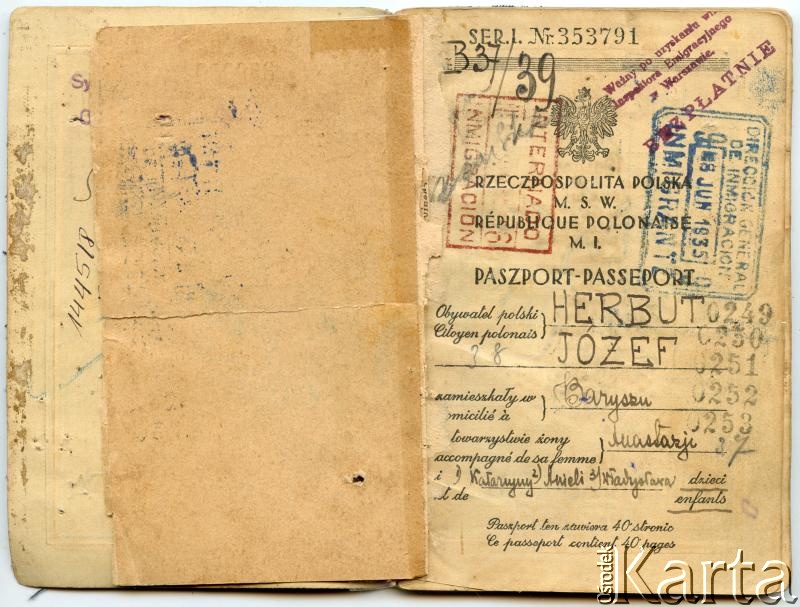 144518
SER. I. Nr. 353791
B 37/39
Ważny po uzyskaniu wizy
Inspektora Emigracyjnego
w Warszawie.
BEZPŁATNIE
INTERNADO
INMIGRACION
DIRECCION GENERAL
DE INMIGRACION
8 JUN 1935
INMIGRANTE
RZECZPOSPOLITA POLSKA
M. S. W.
RÉPUBLIQUE POLONAISE
M. I.
PASZPORT-PASSEPORT
Obywatel polski } HERBUT 0249
Citoyen polonais 0250
38 JÓZEF 0251
zamieszkały w } Baryszu 0252
micilié à 0253
towarzystwie żony } Anastazji 37
accompagné de sa femme
i 1) Katarzyny 2) Anieli 3) Władysława dzieci
et de enfants
Paszport ten zawiera 40 stronic
Ce passeport contient 40 pages
Ośrodek Karta